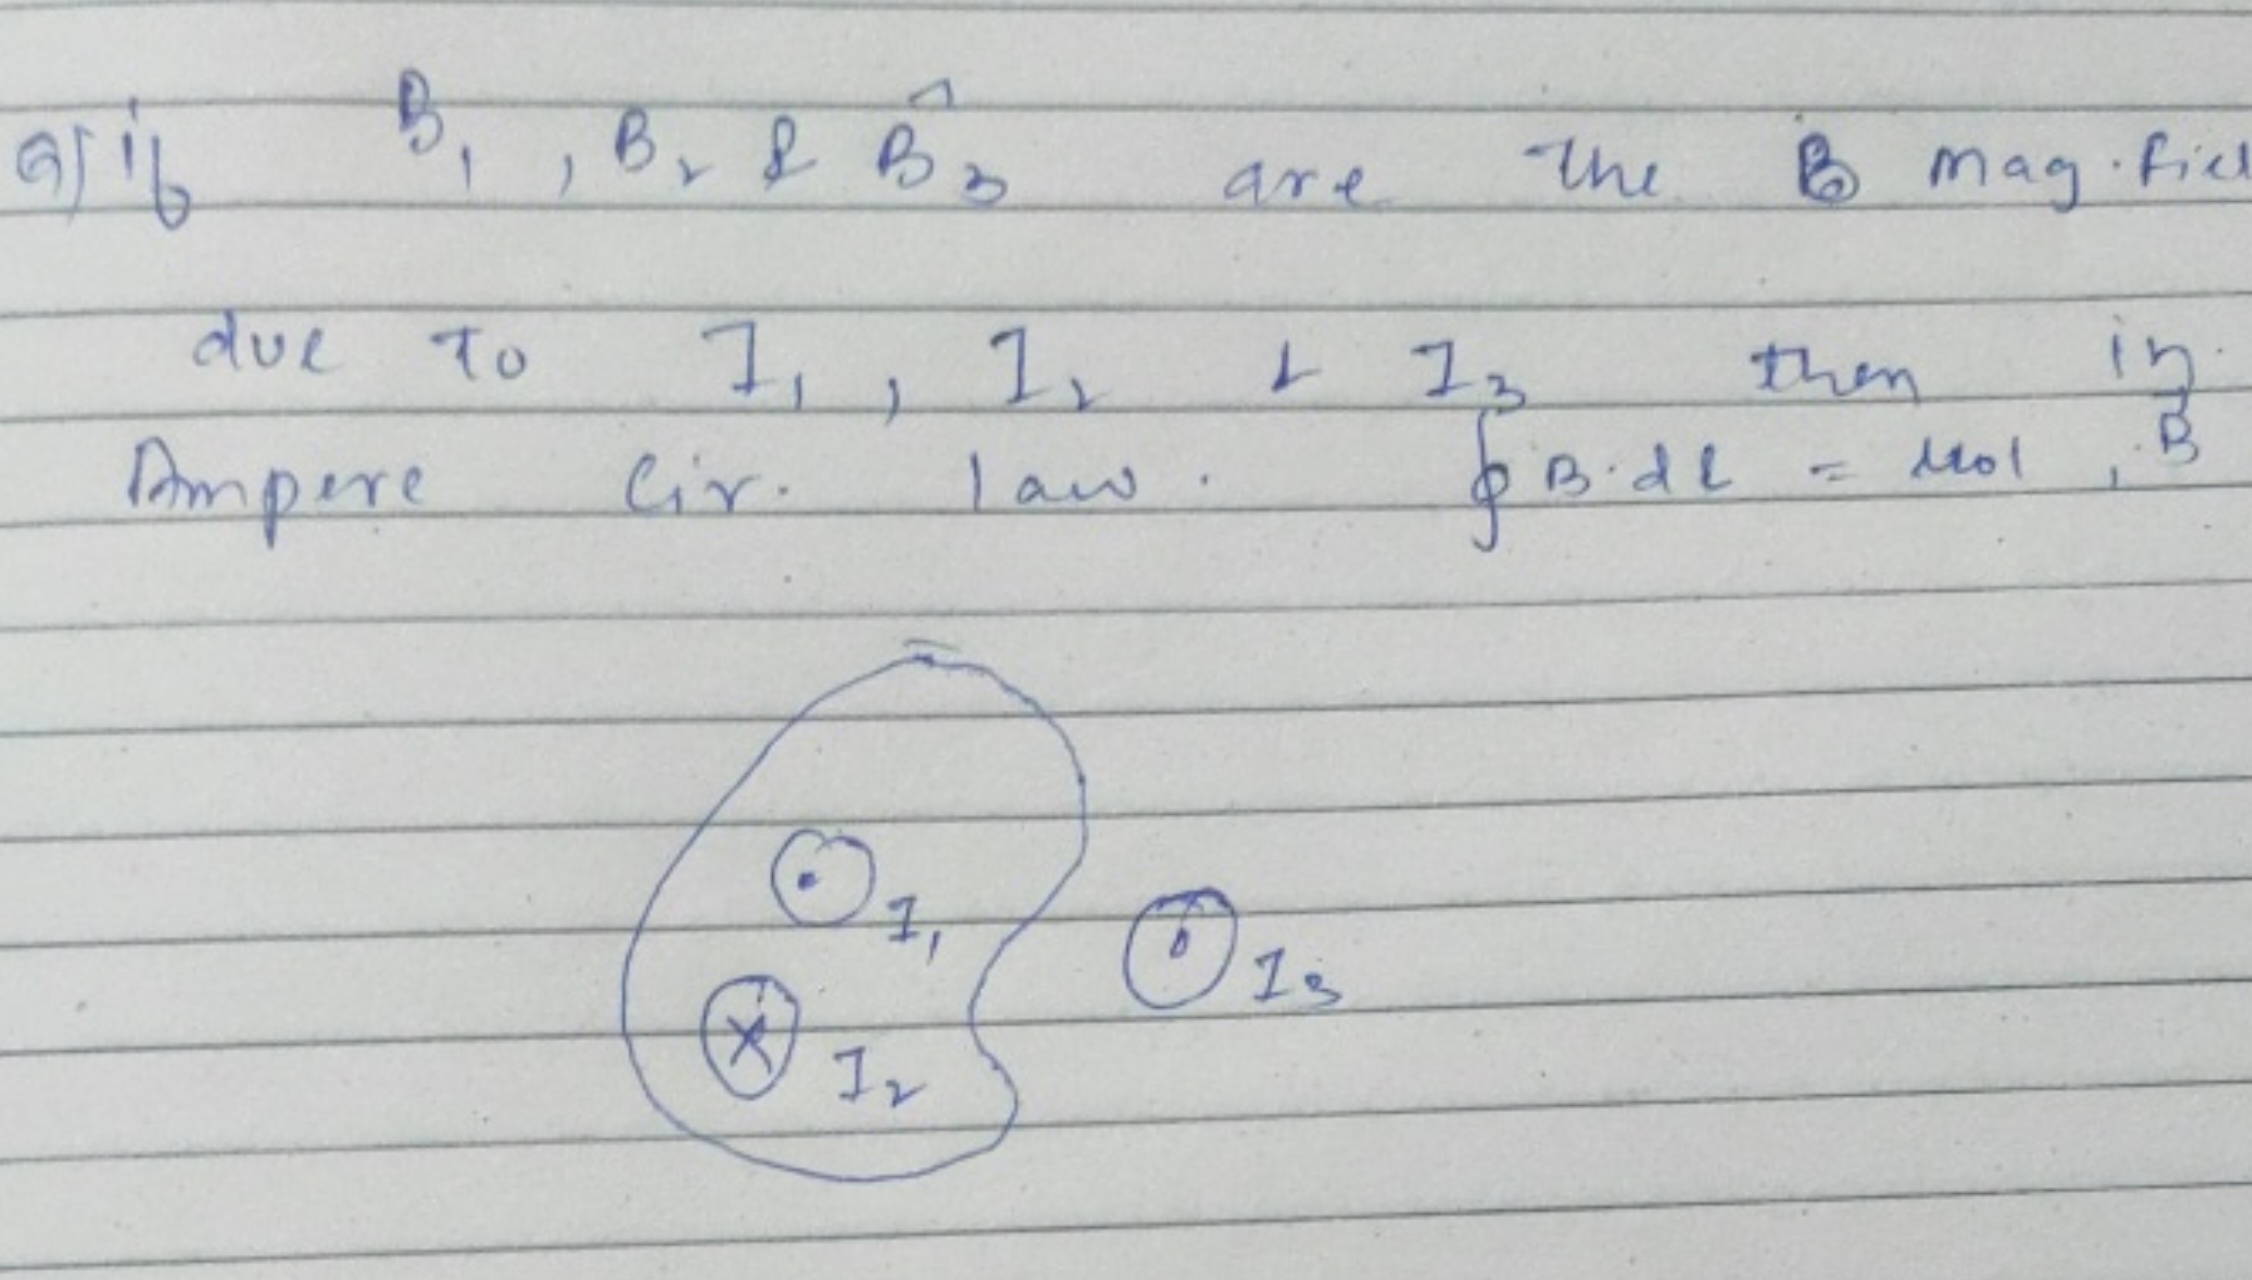 Q) if B₁, B₂ & B₃ are the B mag. fiel
due to I₁, I₂ & I₃ then in
Ampere Cir. law. ∮B.dl = μoI, B
I₁
I₃
I₂